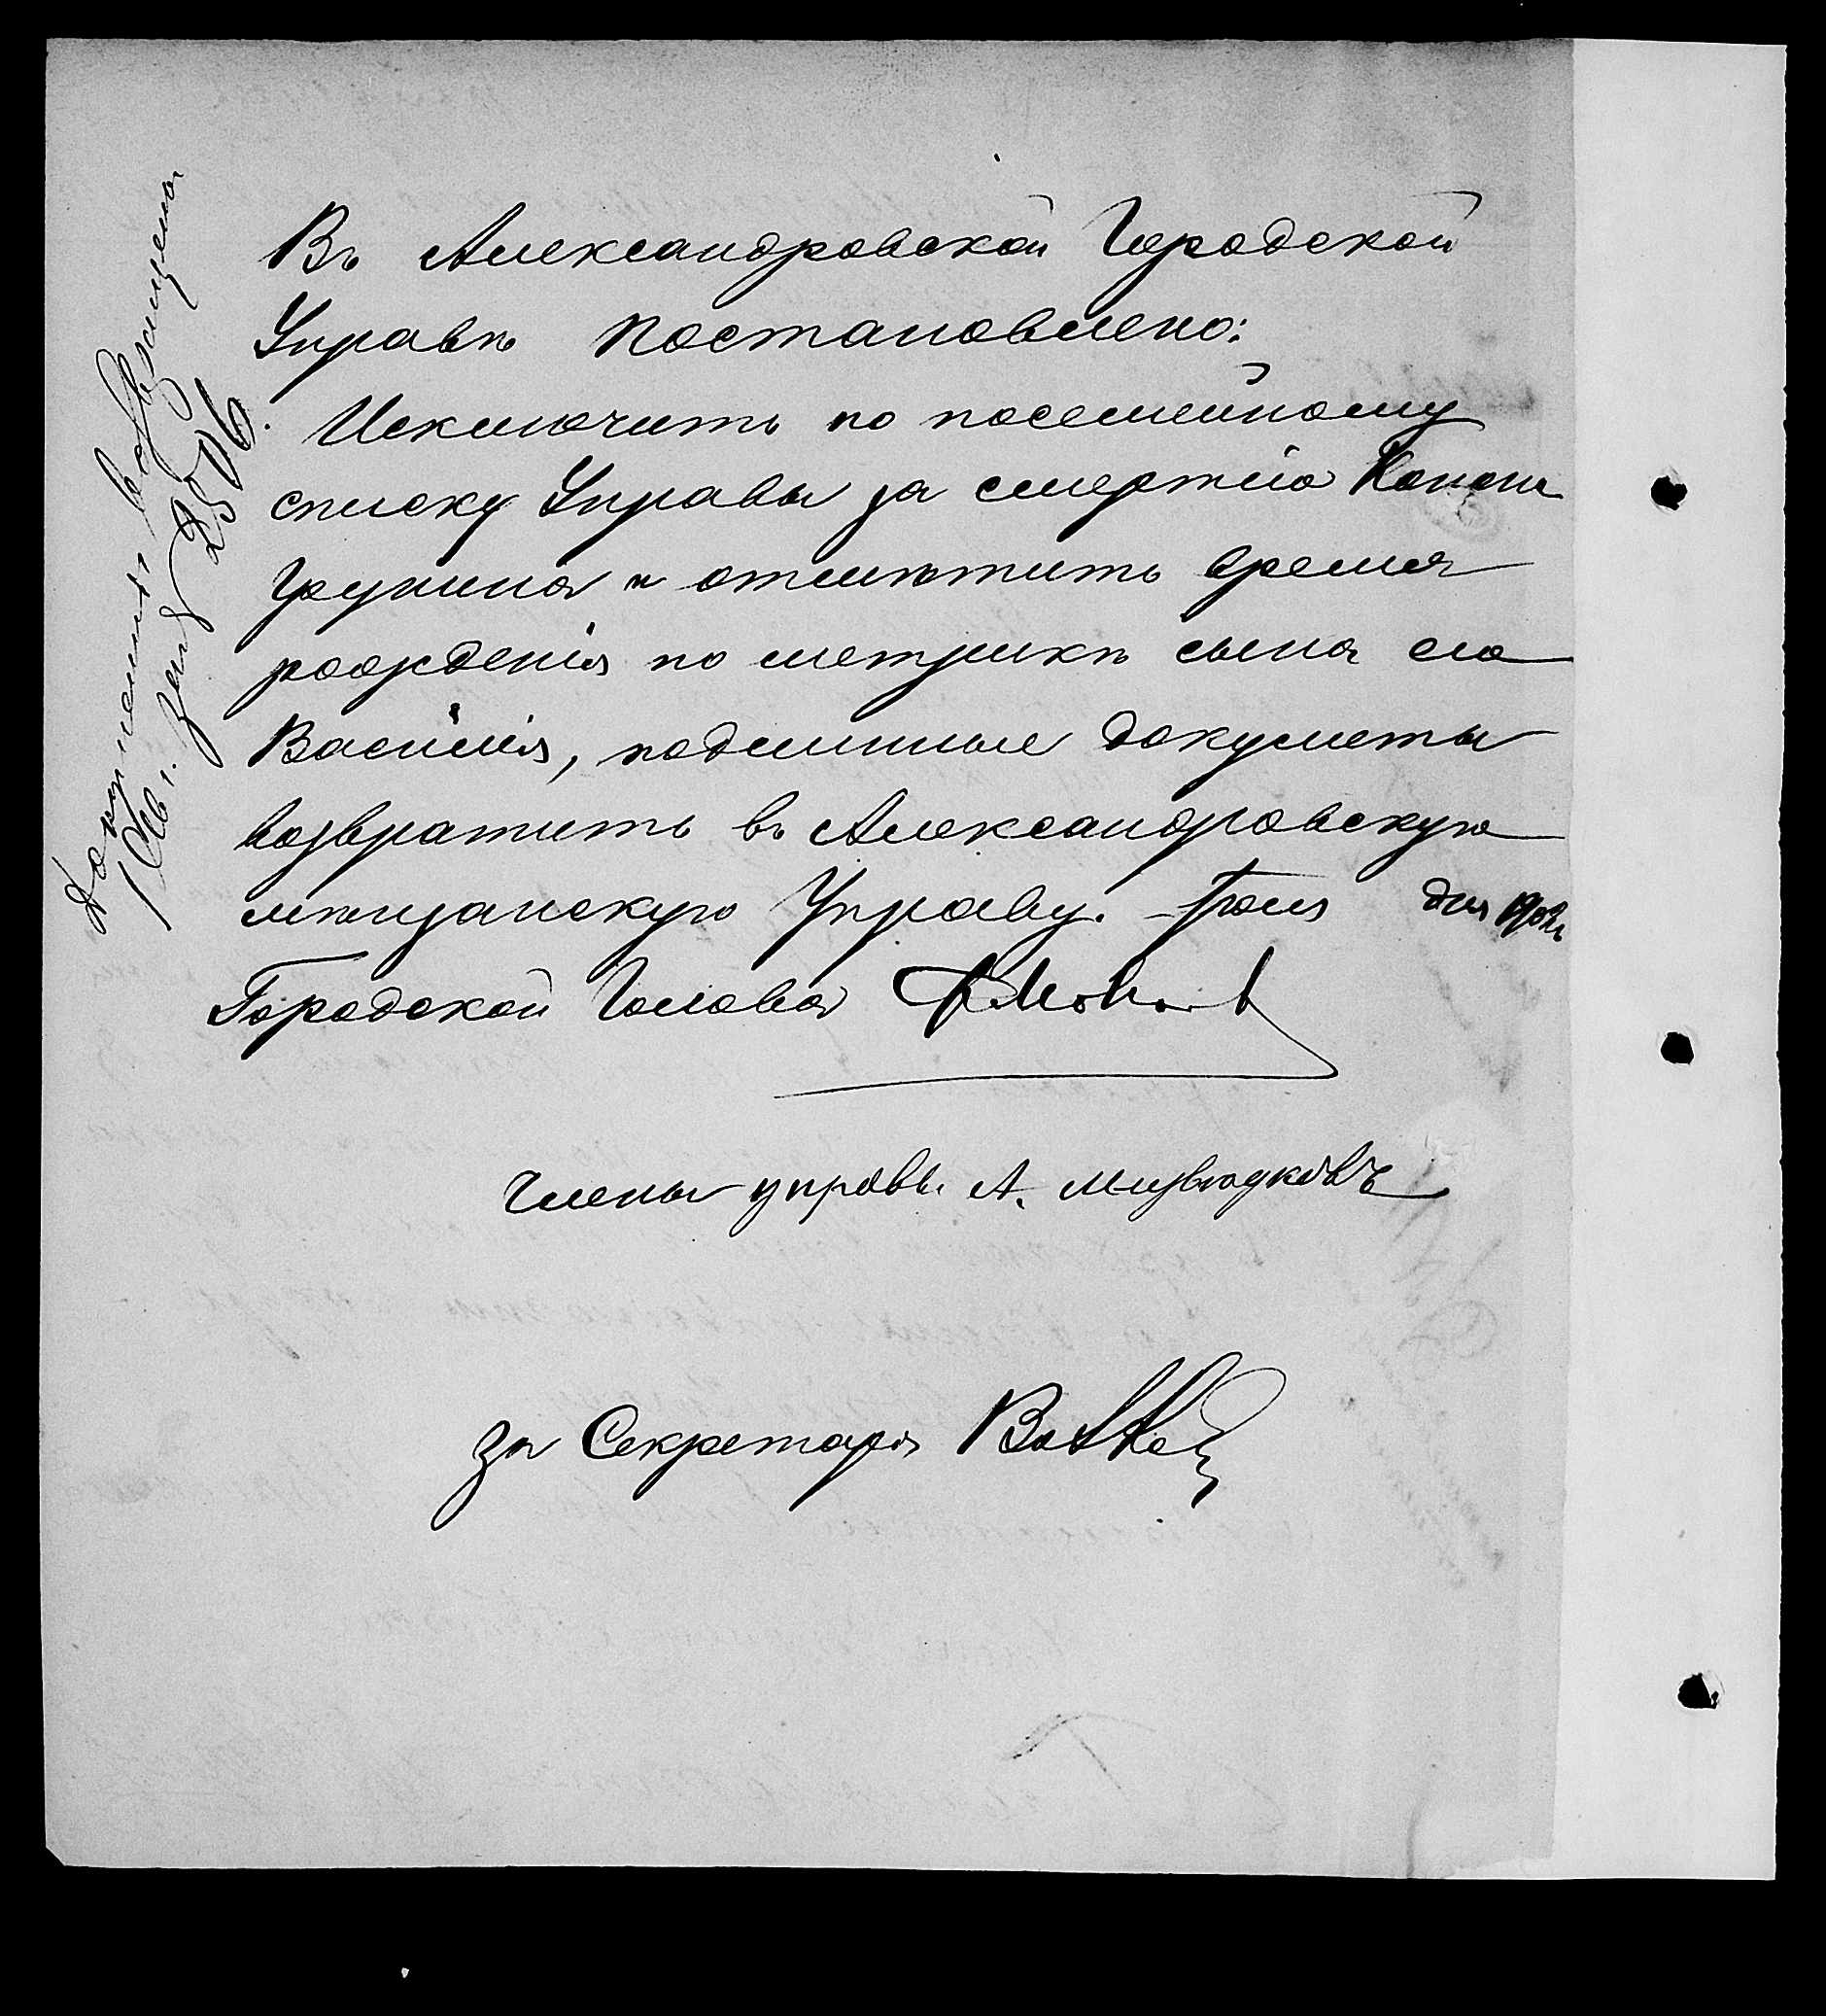 Въ Александровской Городской
Управѣ постановлено:
Исключить по посемейному
списку Управы за смертію Конона
Грунина и отмѣтить время
рожденія по метрикѣ сына его
Василія, подлинные документы
возвратить въ Александровскую
мѣщанскую Управу. Іюля дня 1902г.
Городской Голова
Члены управы А.
За Секретаря
Документы возвращены
1 Авг. за № 2506.